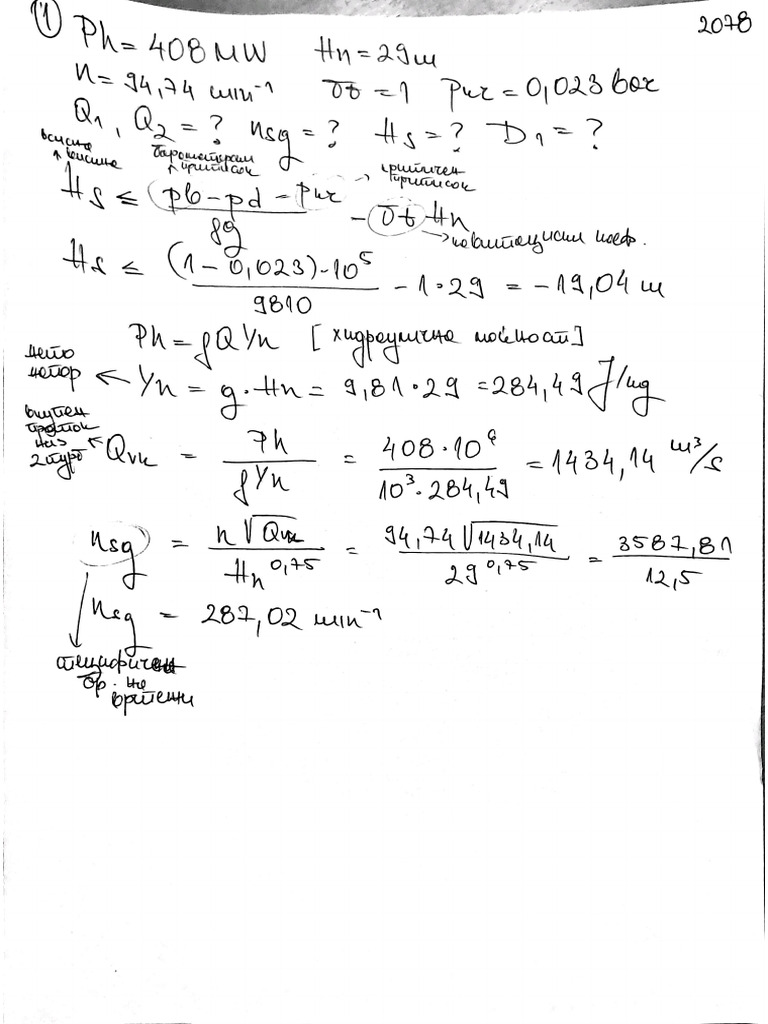 2078
① Ph = 408 MW Hn = 29 m
n = 94,74 min⁻¹ σt = 1 pкr = 0,023 bar
Q1, Q2 = ? nsq = ? Hs = ? D1 = ?
барометарски притисок
критичен притисок
Hs ≤ (pb - pd - pкr) / ρg - σt Hn
кавитациски коеф.
Hs ≤ (1 - 0,023)·10⁵ / 9810 - 1·29 = -19,04 m
Ph = ρQYn [хидраулична моќност]
нето напор ← Yn = g·Hn = 9,81·29 = 284,49 J/kg
вкупен проток низ 2 турб ← Qvk = Ph / ρYn = 408·10⁶ / 10³·284,49 = 1434,14 m³/s
nsq = n√Qvk / Hn^0,75 = 94,74√1434,14 / 29^0,75 = 3587,81 / 12,5
nsq = 287,02 min⁻¹
специфичен
бр. на
вртежи